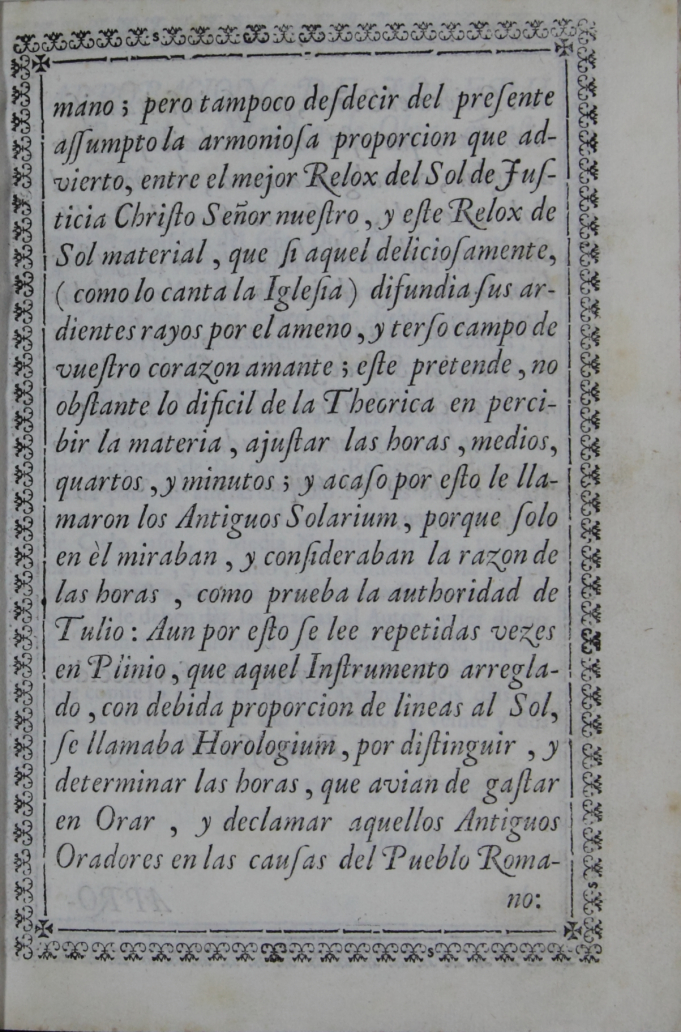 mano; pero tampoco deſdecir del preſente
aſſumpto la armonioſa proporcion que ad-
vierto, entre el mejor Relox del Sol de Juſ-
ticia Chriſto Señor nueſtro, y eſte Relox de
Sol material, que ſi aquel delicioſamente,
(como lo canta la Igleſia) difundia ſus ar-
dientes rayos por el ameno, y terſo campo de
vueſtro corazon amante; eſte pretende, no
obſtante lo dificil de la Theorica en perci-
bir la materia, ajuſtar las horas, medios,
quartos, y minutos; y acaſo por eſto le lla-
maron los Antiguos Solarium, porque ſolo
en èl miraban, y conſideraban la razon de
las horas, como prueba la authoridad de
Tulio: Aun por eſto ſe lee repetidas vezes
en Plinio, que aquel Inſtrumento arregla-
do, con debida proporcion de lineas al Sol,
ſe llamaba Horologium, por diſtinguir, y
determinar las horas, que avian de gaſtar
en Orar, y declamar aquellos Antiguos
Oradores en las cauſas del Pueblo Roma-
no: